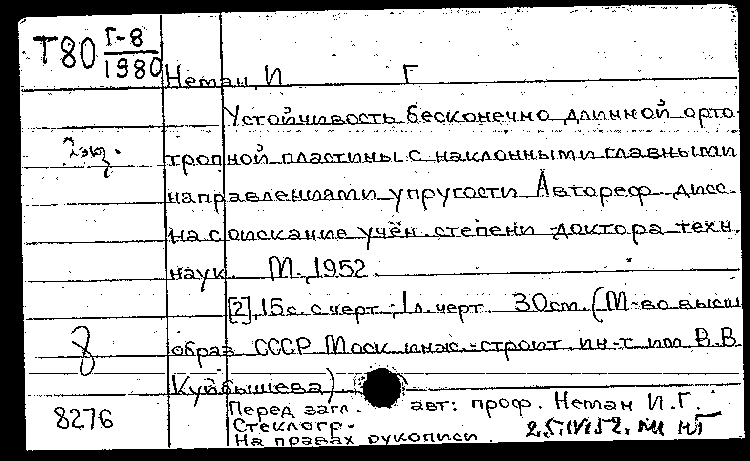 Т80 Г-8
1980
Неман, И Г
Устойчивость бесконечно длинной орто-
2 экз. тропной пластины с наклонными главными
направлениями упругости Автореф. дисс.
на соискание учён. степени доктора техн.
наук. М., 1952.
[2], 15 с. с черт.; 1 л. черт. 30 см. (М-во высш
8 образ СССР Моск инж.-строит. ин-т им В.В
Куйбышева).
8276 Перед загл. авт: проф. Неман И.Г.
Стеклогр.
На правах рукописи. 25/IV 52.